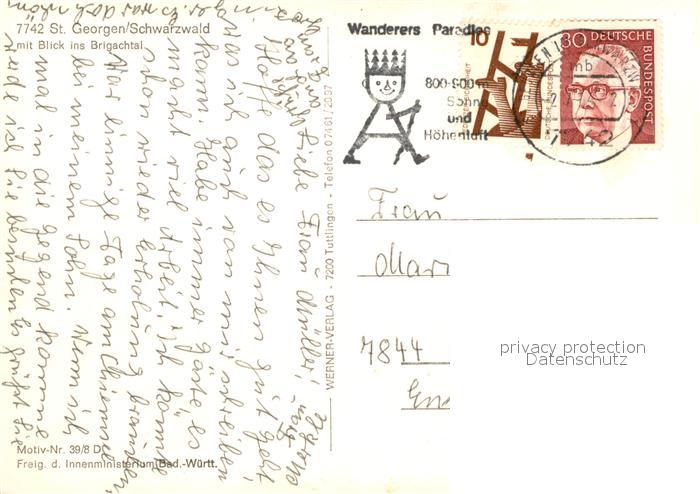 7742 St. Georgen/Schwarzwald
mit Blick ins Brigachtal
Liebe Frau Müller!
Hoff das es Ihnen gut geht
was ich auch von mir schreiben
kann. Habe immer Gäste es
macht viel Arbeit, ich könnte
schon wieder Erholung brauchen,
War einige Tage am Chiemsee
bei meinem Sohn. Wenn ich
mal in die Gegend komme
werde ich Sie besuchen Es grüßt Sie
Motiv-Nr. 39/8 D
Freig. d. Innenministerium Bad.-Württ.
WERNER-VERLAG - 7200 Tuttlingen - Telefon 07461/2097
Wanderers Paradies
800-900 m
Sonne
und
Höhenluft
10
30 DEUTSCHE
BUNDESPOST
Frau
Mar
7844
privacy protection
Datenschutz